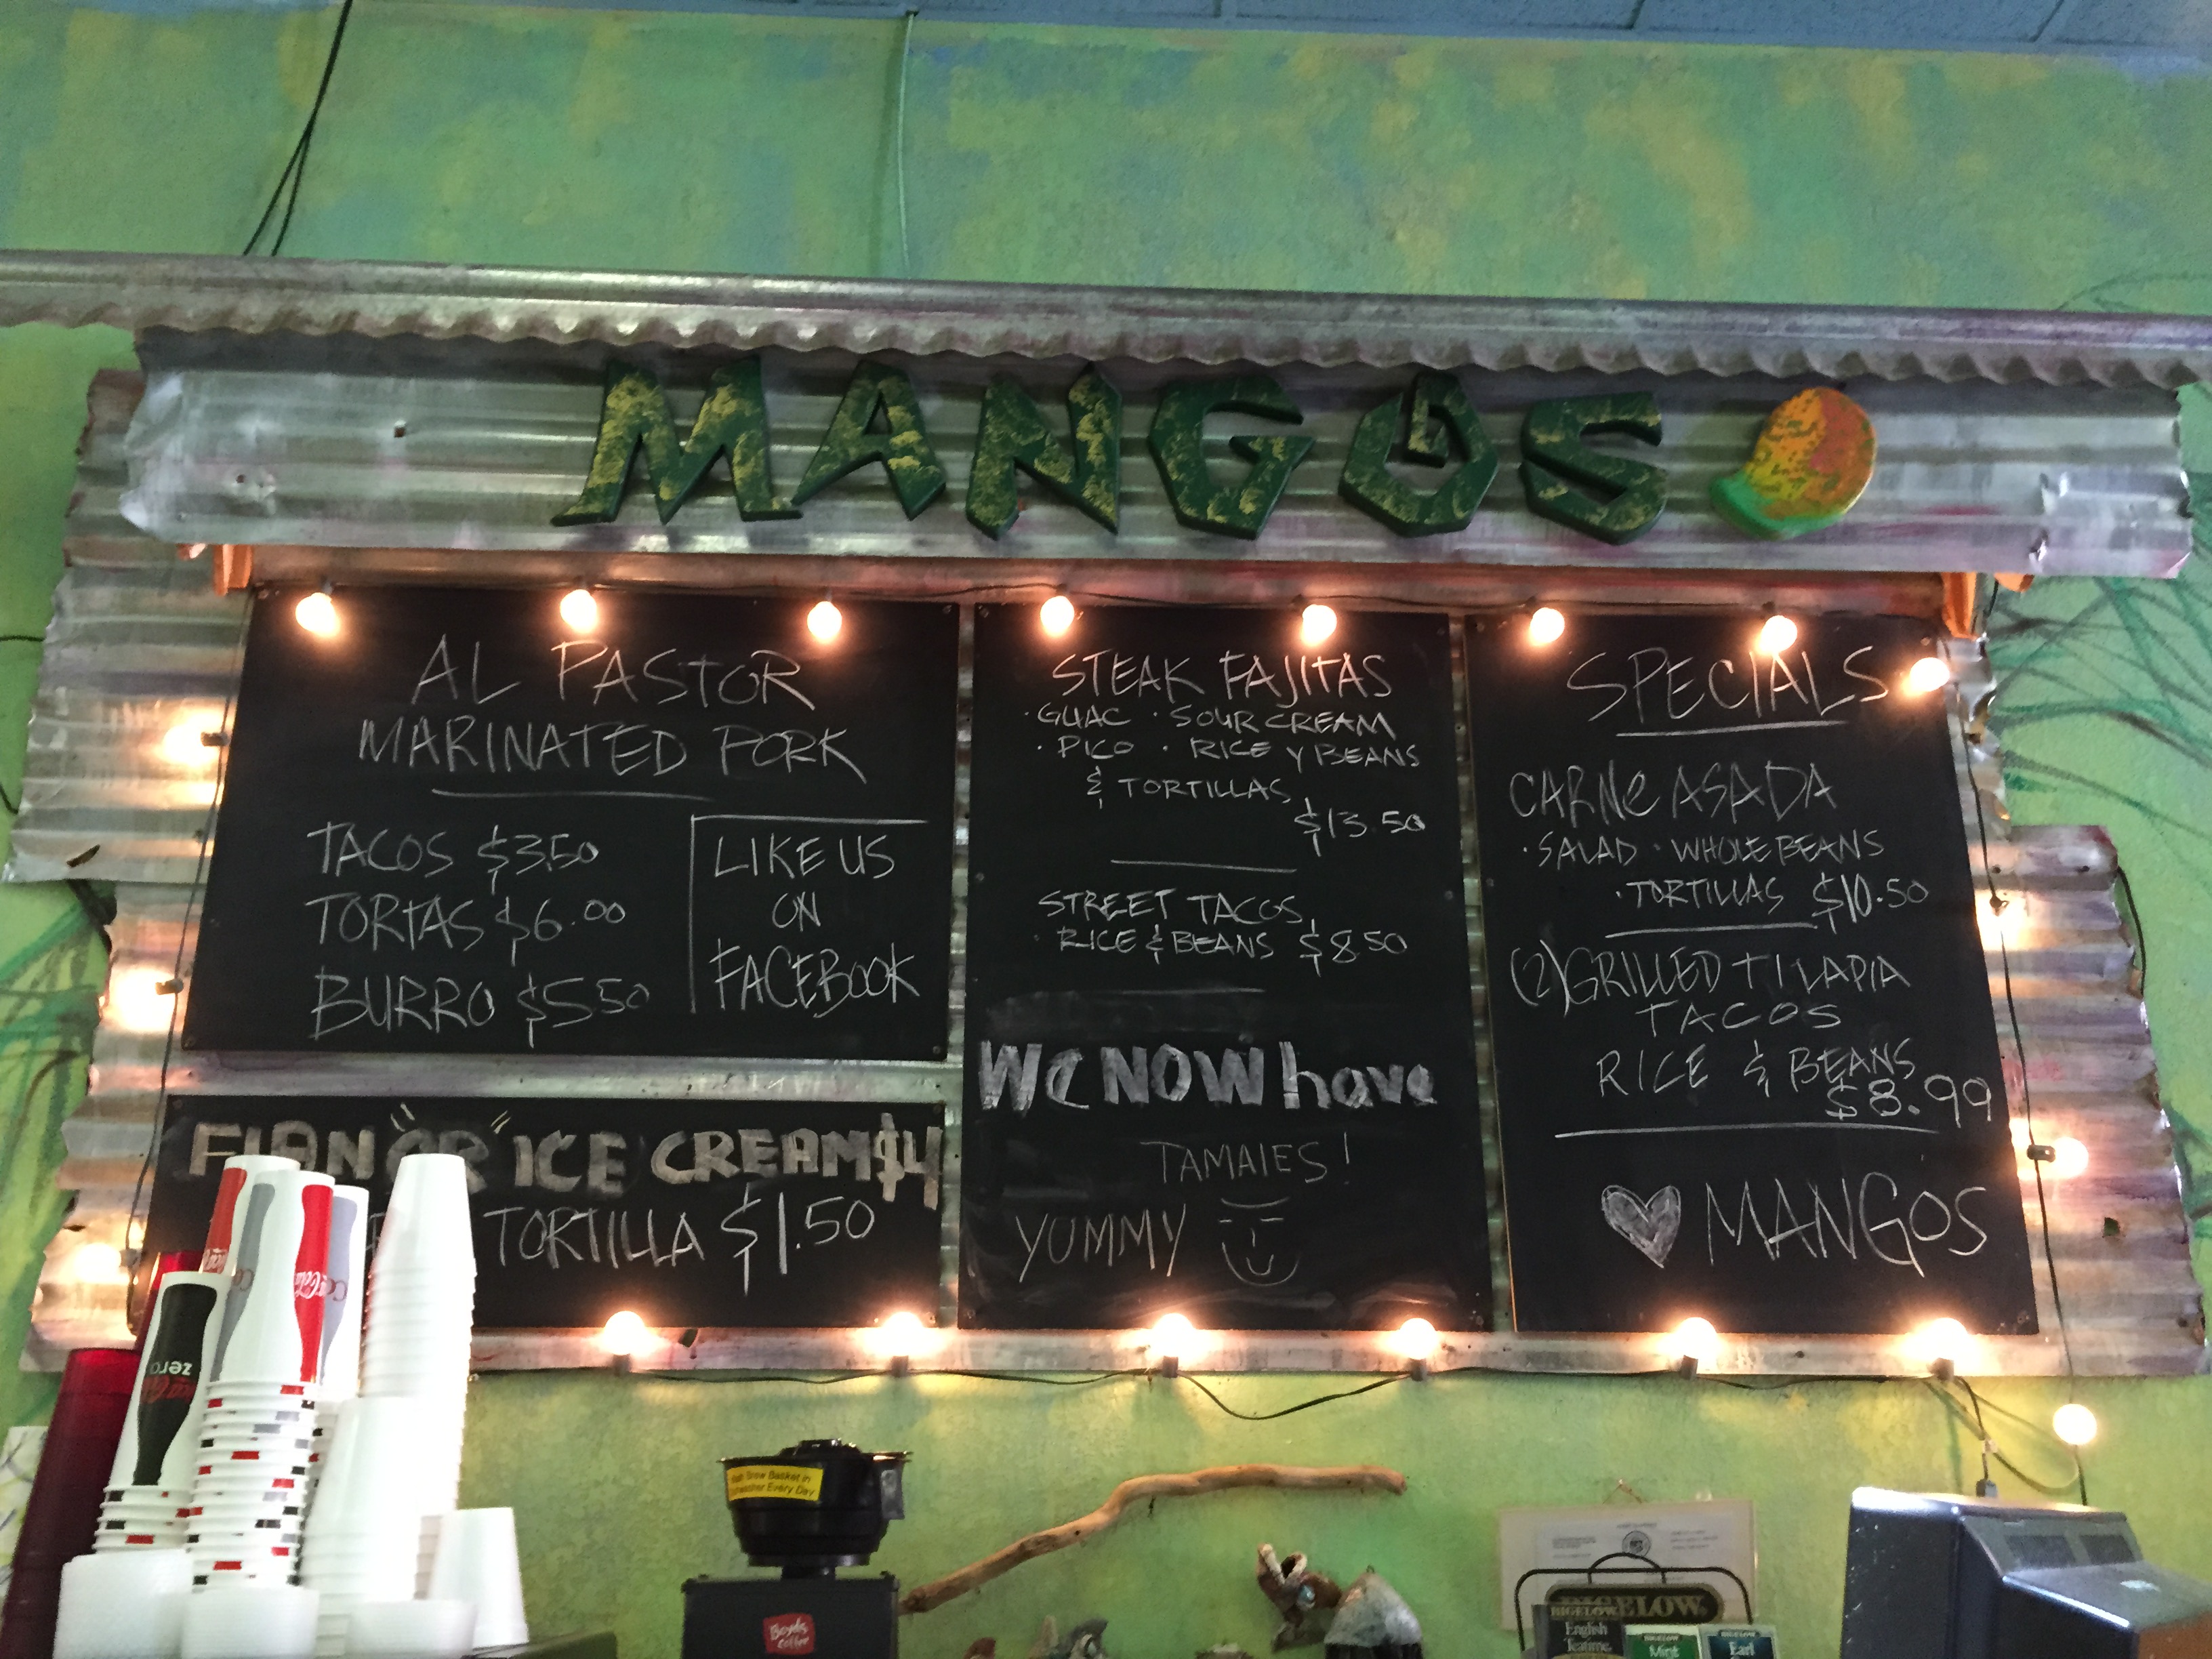 MANGOS
AL PASTOR
MARINATED PORK
TACOS $3.50
TORTAS $6.00
BURRO $5.50
LIKE US
ON
FACEBOOK
FLAN "OR" ICE CREAM $4
TORTILLA $1.50
STEAK FAJITAS
· GUAC · SOUR CREAM
· PICO · RICE Y BEANS
& TORTILLAS
$13.50
STREET TACOS
· RICE & BEANS $8.50
We NOW have
TAMALES!
YUMMY
SPECIALS
CARNe ASADA
· SALAD · WHOLE BEANS
· TORTILLAS $10.50
(2) GRILLED TILAPIA
TACOS
RICE & BEANS
$8.99
MANGOS
Coca-Cola
zero
Brew Basket in
Every Day
Boyds
Coffee
BIGELOW
BIGELOW
English
Teatime
BIGELOW
Mint
BIGELOW
Earl